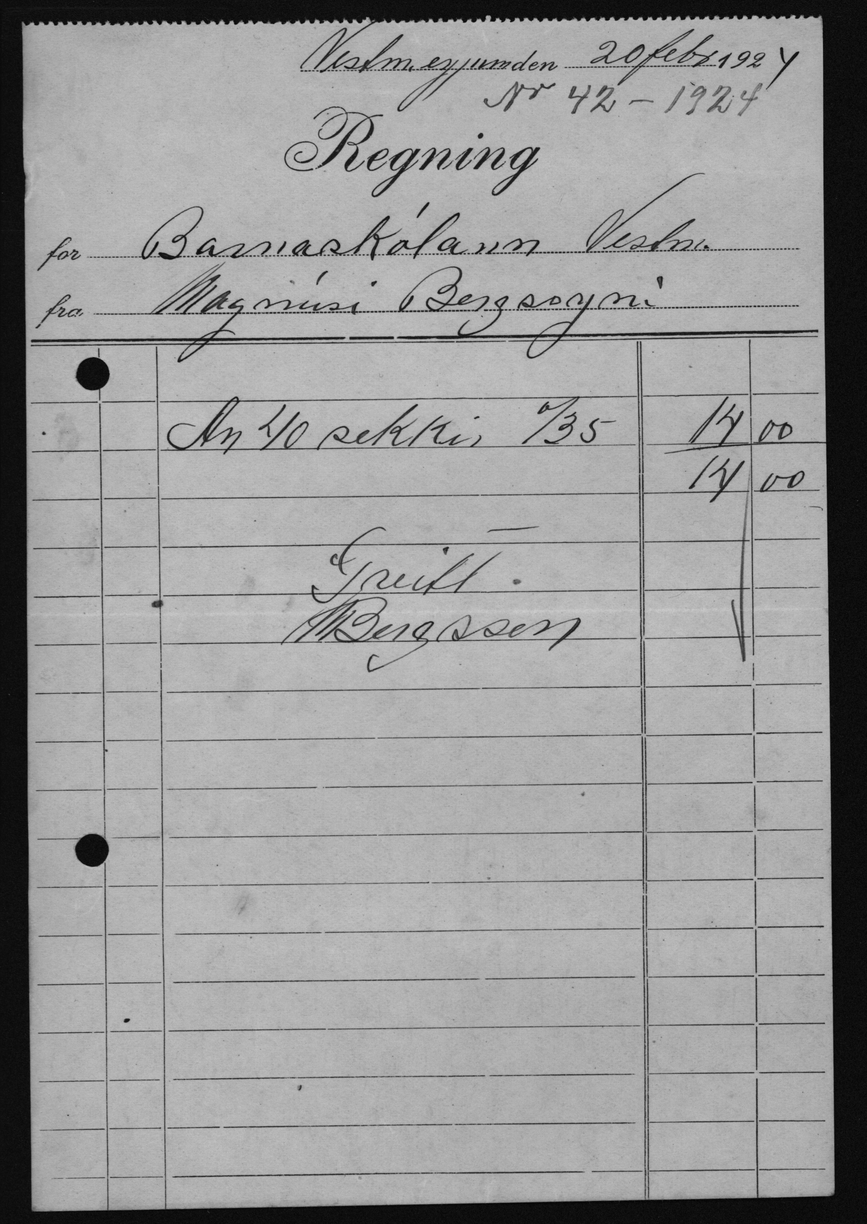 Vestm.eyjum den 20 febr 1924
Nr 42 - 1924
Regning
for Barnaskólann Vestm.
fra Magnúsi Bergssyni
An 40 sekkir á/35 14 00
14 00
Greitt.
MBergsson